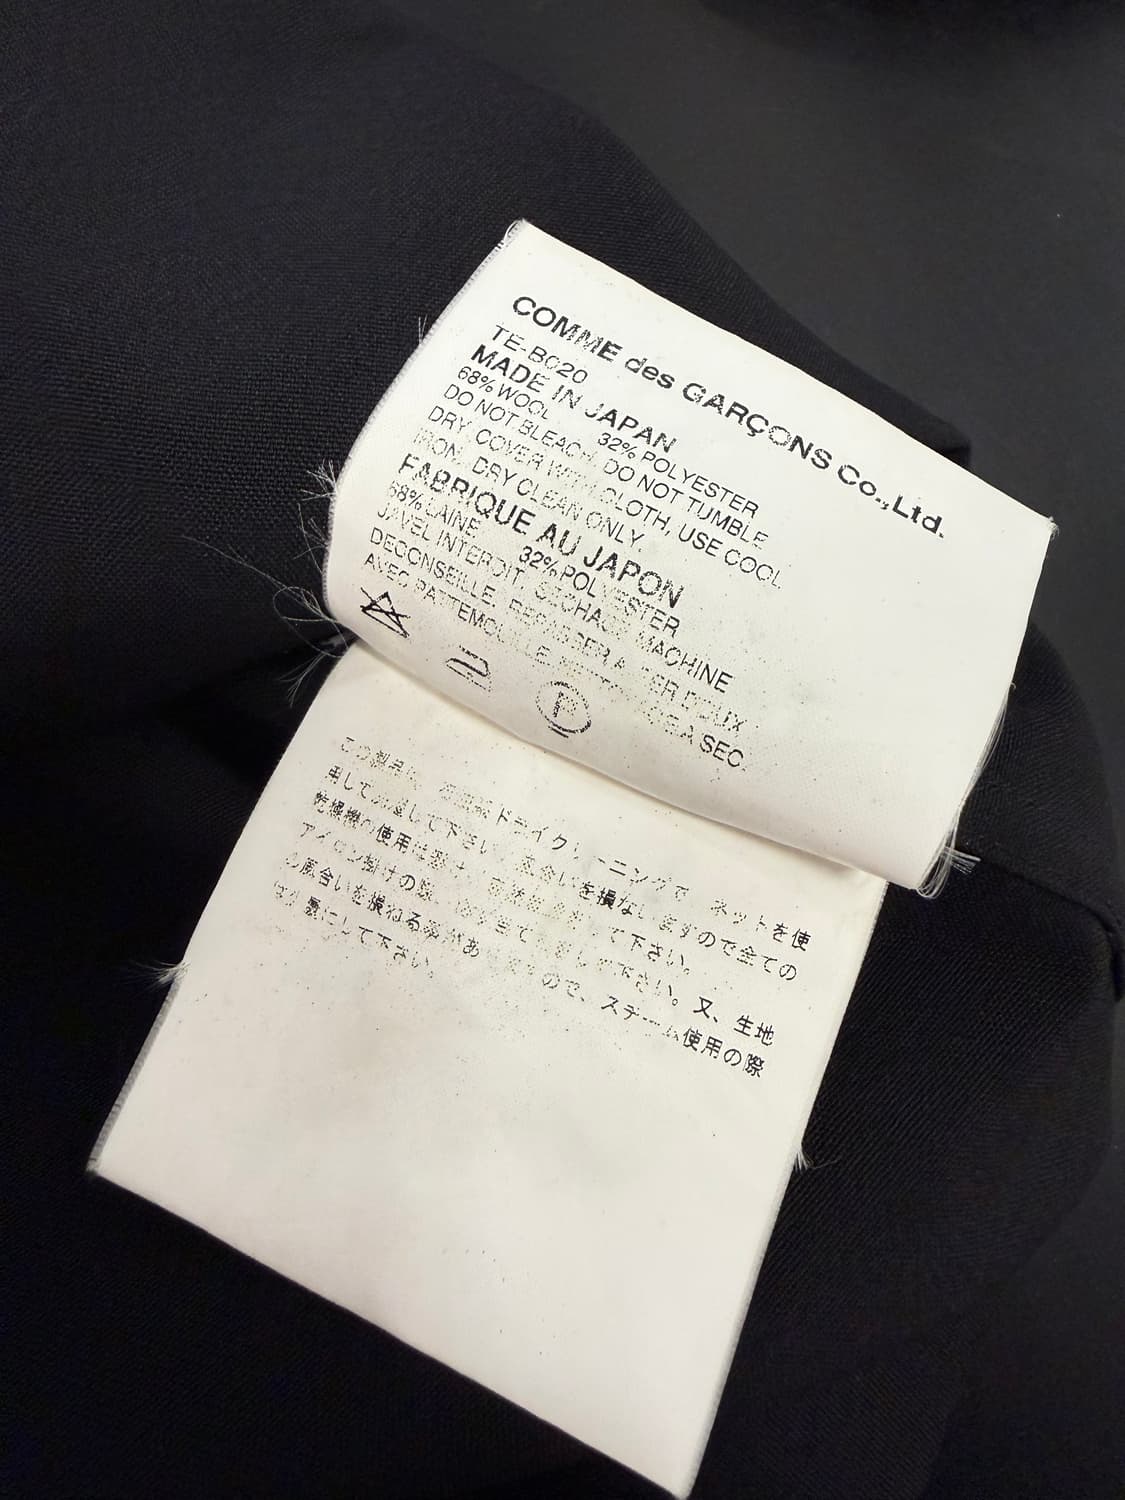 COMME des GARÇONS Co.,Ltd.
TE-B020
MADE IN JAPAN
68% WOOL 32% POLYESTER
DO NOT BLEACH, DO NOT TUMBLE
DRY, COVER WITH CLOTH, USE COOL
IRON. DRY CLEAN ONLY.
FABRIQUE AU JAPON
68% LAINE 32% POLYESTER
JAVEL INTERDIT, SECHAGE MACHINE
DECONSEILLE. REPASSER A FER DOUX
AVEC PATTEMOUILLE. NETTOYAGE A SEC.
P
この製品は ドライクリーニングで ネットを使
用して 下さい。 風合いを損ないますので全ての
乾燥機の使用は 下さい。
アイロン掛けの際は必ず当て 下さい。又、生地
の風合いを損ねる事があ ますので、スチーム使用の際
は 下さい。